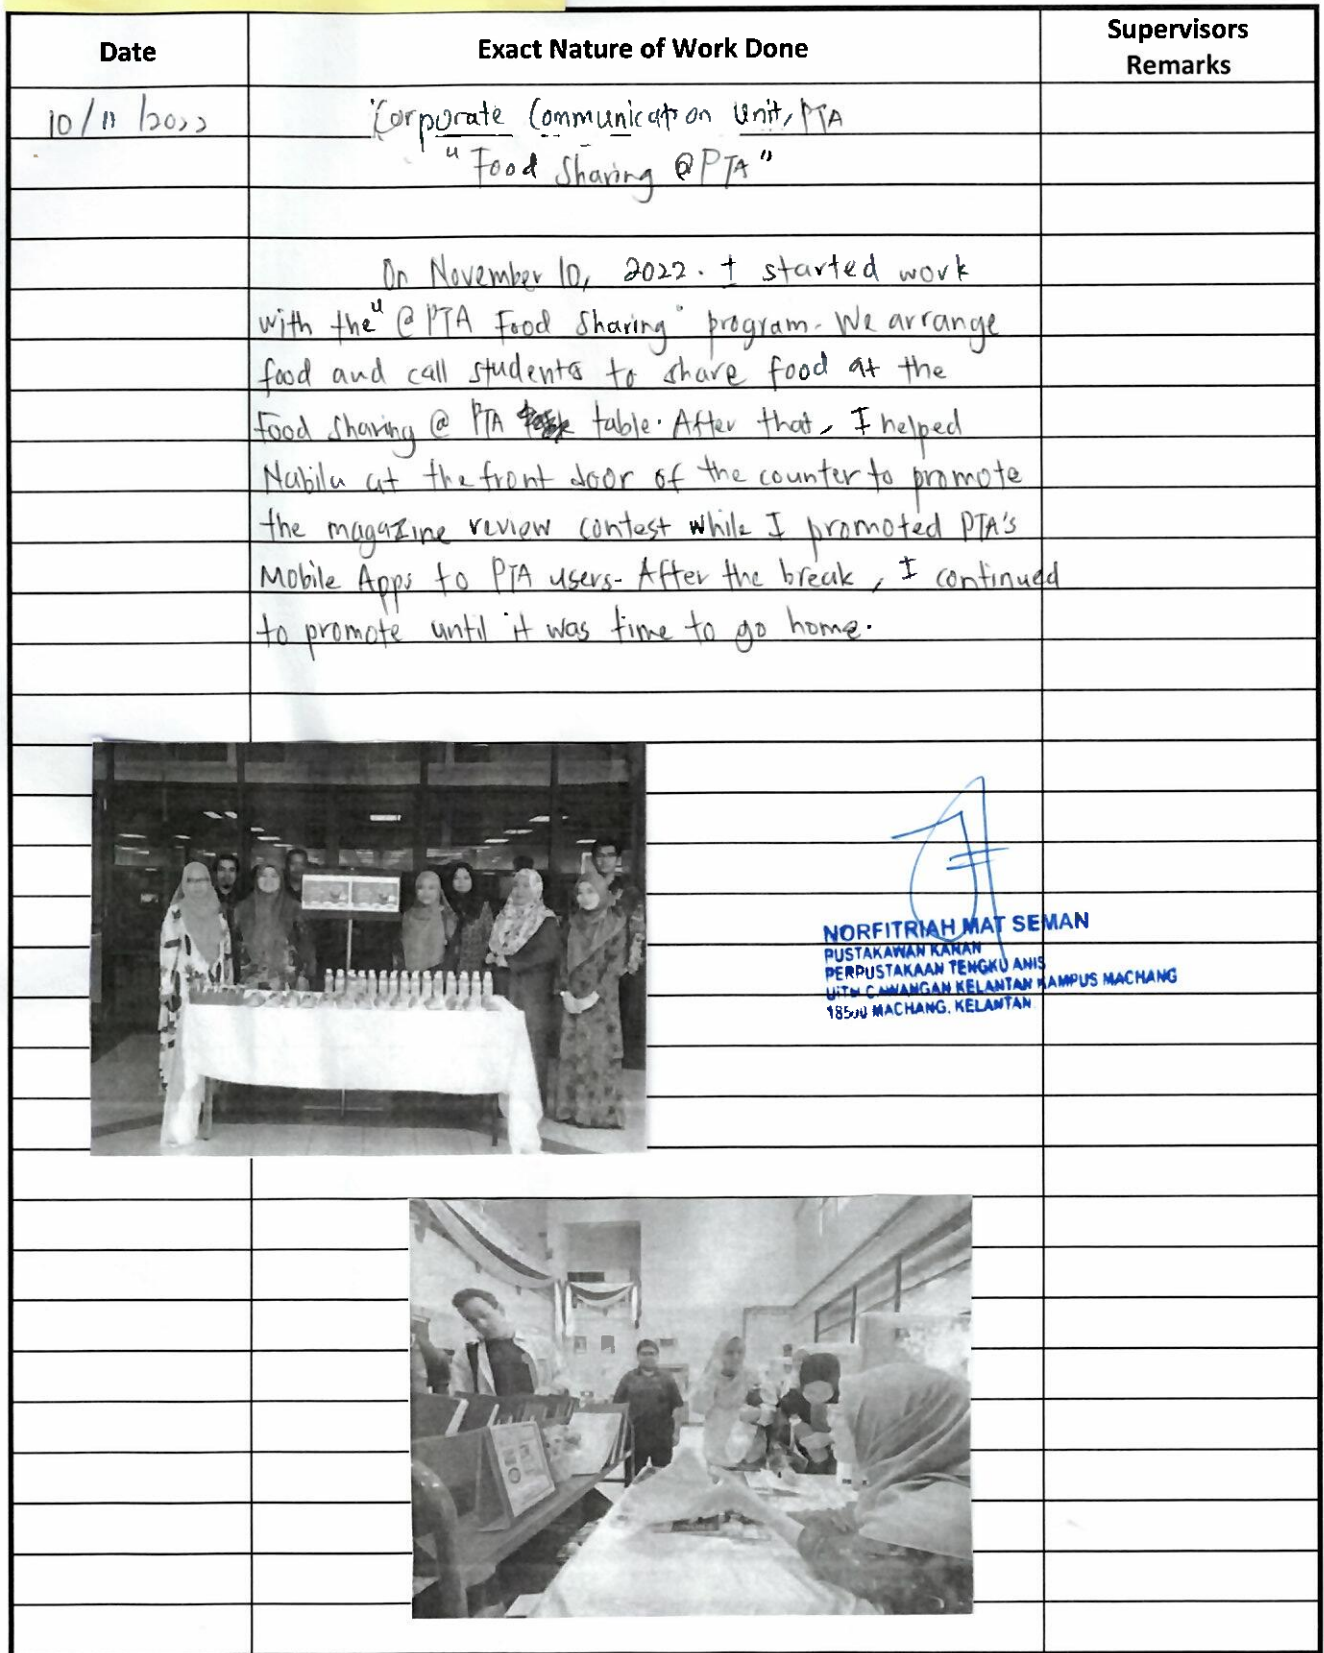 Date
Exact Nature of Work Done
Supervisors
Remarks
10/11/2022
Corporate Communication Unit, PTA
"Food Sharing @PTA"
On November 10, 2022. I started work
with the "@PTA Food Sharing" program. We arrange
food and call students to share food at the
Food Sharing @ PTA table. After that, I helped
Nabila at the front door of the counter to promote
the magazine review contest while I promoted PTA's
Mobile Apps to PTA users. After the break, I continued
to promote until it was time to go home.
NORFITRIAH MAT SEMAN
PUSTAKAWAN KANAN
PERPUSTAKAAN TENGKU ANIS
UiTM CAWANGAN KELANTAN KAMPUS MACHANG
18500 MACHANG, KELANTAN